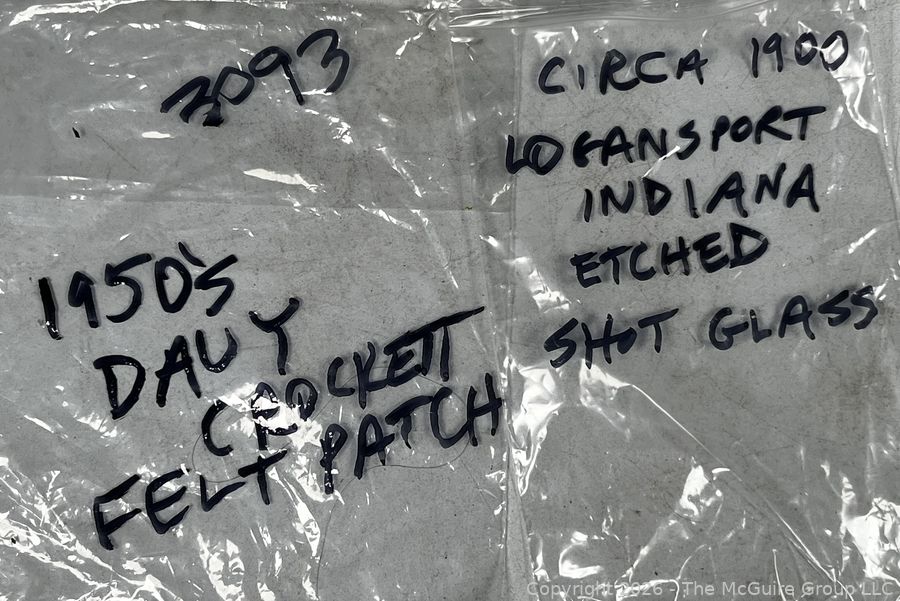 3093
1950's
DAVY
CROCKETT
FELT PATCH
CIRCA 1900
LOGANSPORT
INDIANA
ETCHED
SHOT GLASS
Copyright 2026 - The McGuire Group LLC